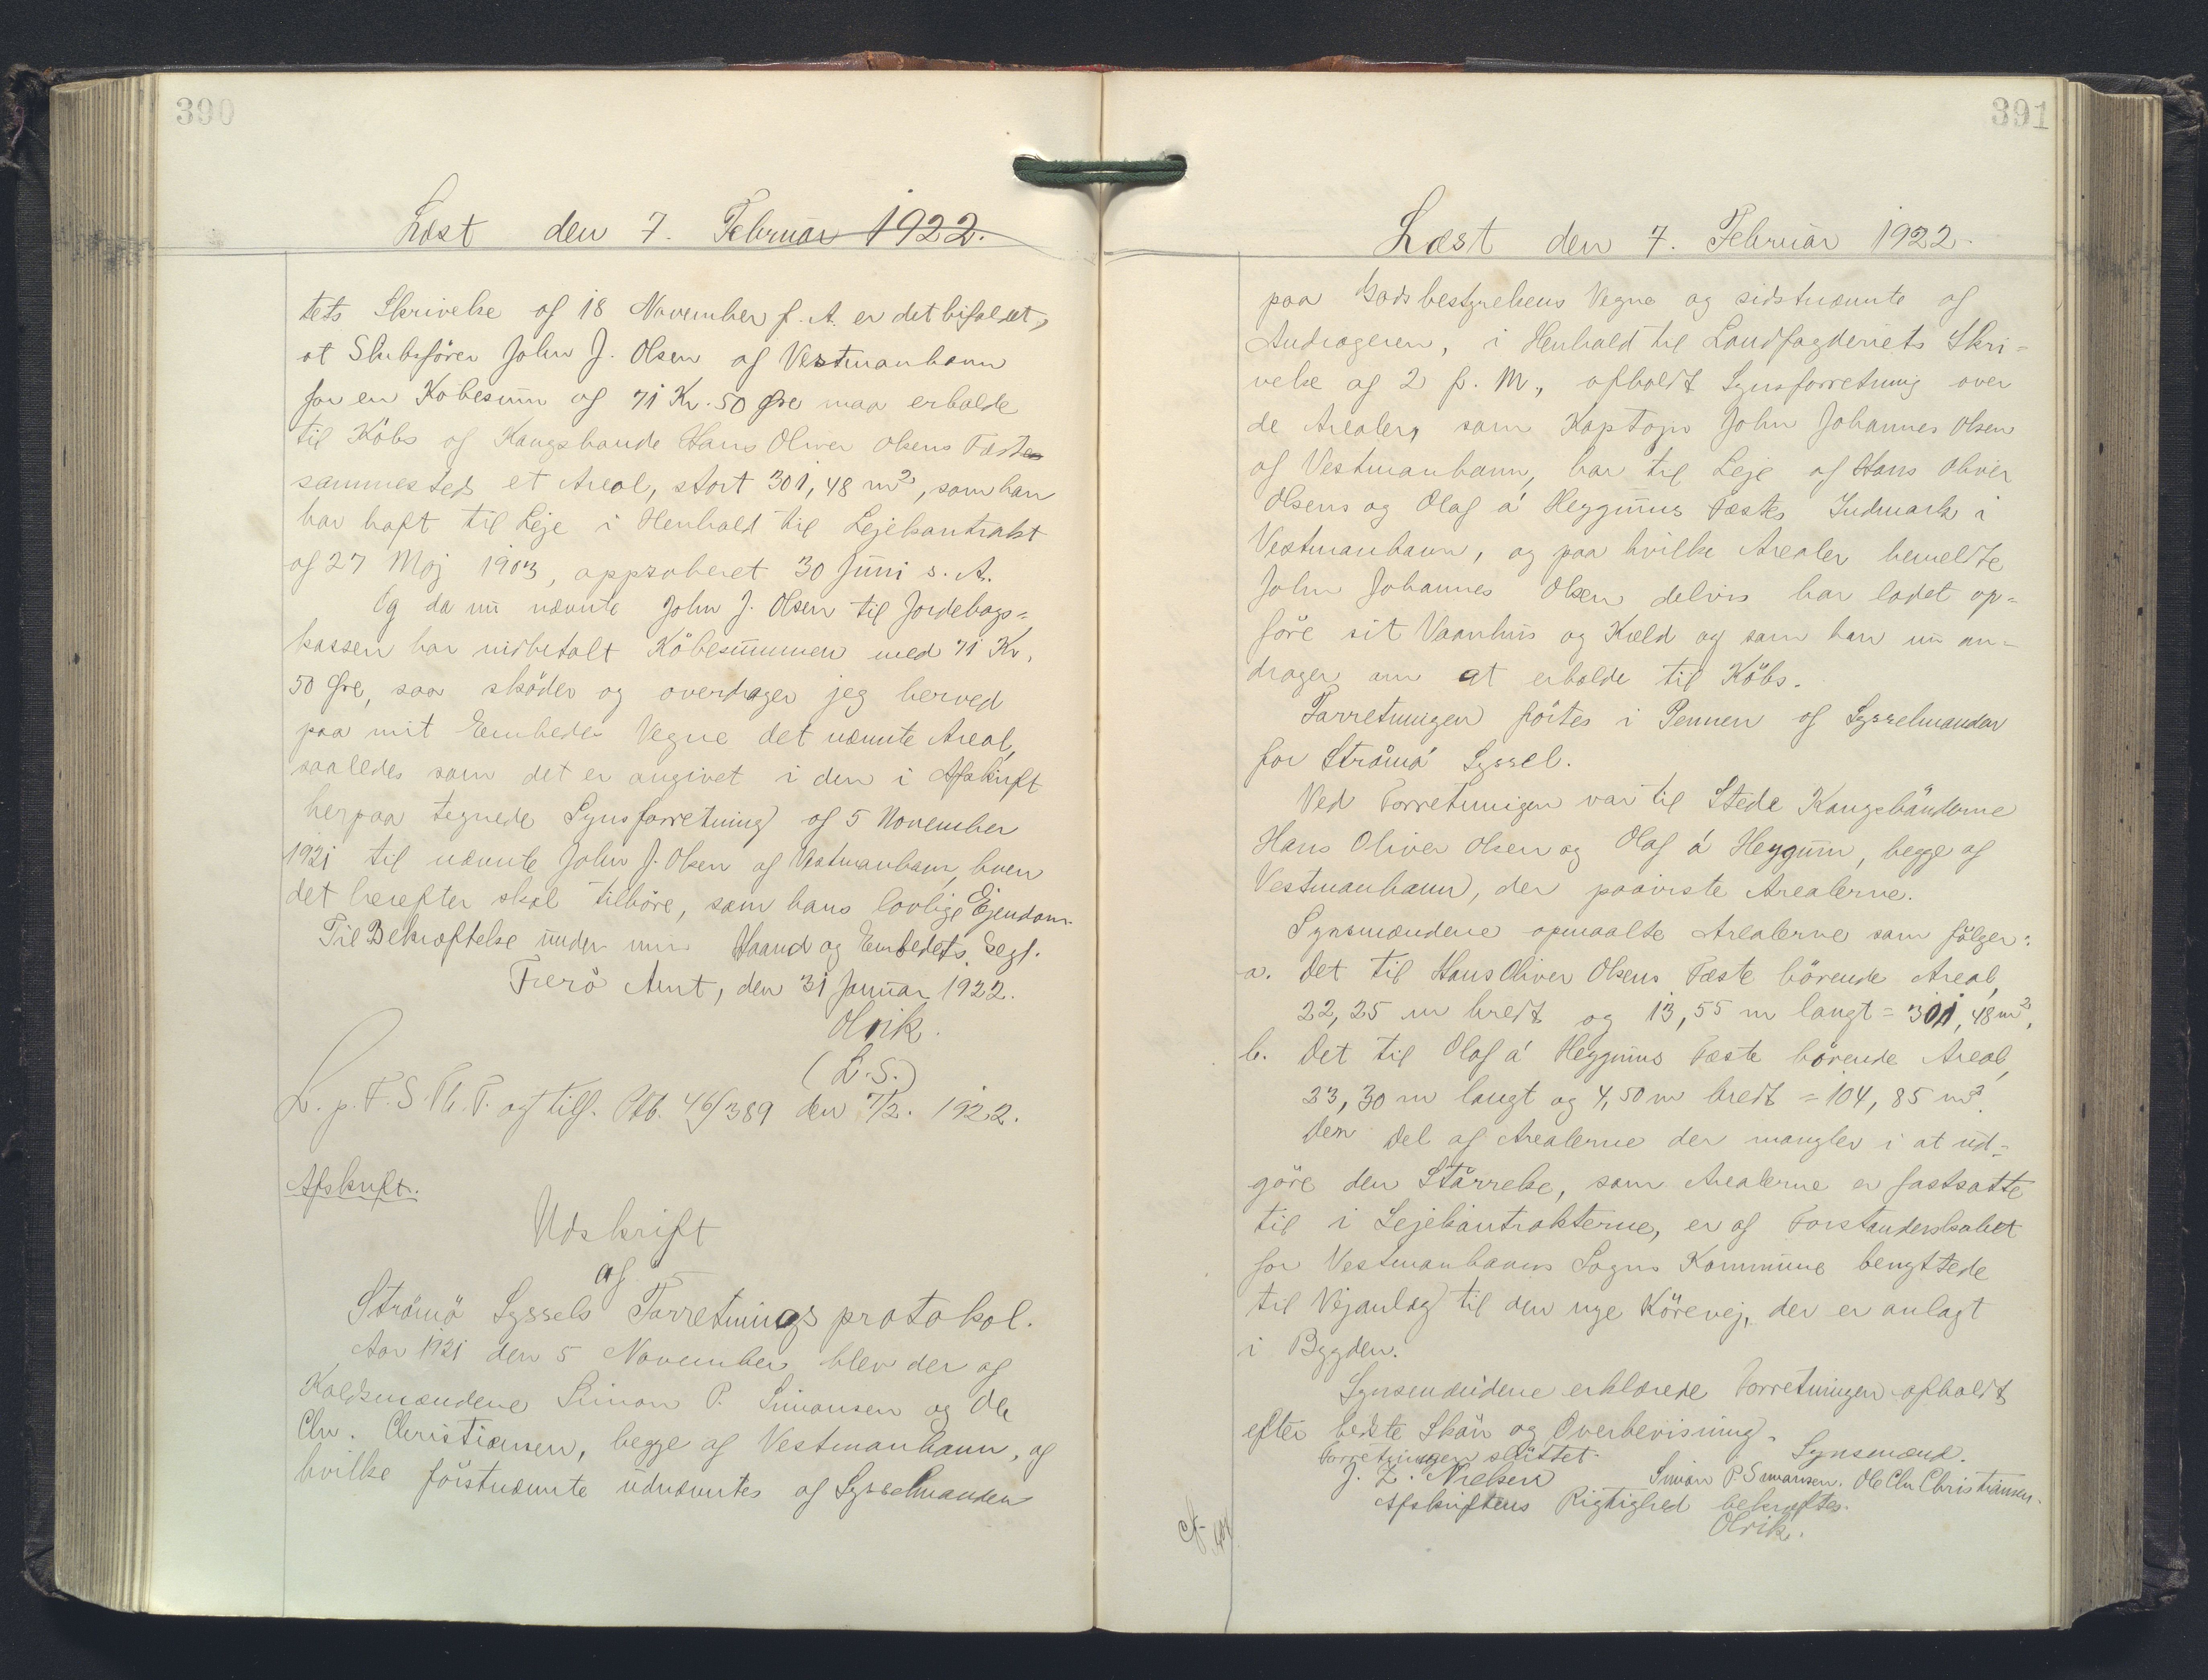 390
Læst den 7. Februar 1922.
tets Skrivelse af 18 November f. A. er det bifaldet,
at Skibsfører John J. Olsen af Vestmanhavn
for en Købesum af 71 Kr. 50 Øre maa erholde
til Købs af Kongsbonde Hans Oliver Olsens Fæste
sammesteds et Areal, stort 301,48 m², som han
har haft til Leje i Henhold til Lejekontrakt
af 27 Maj 1903, approberet 30 Juni s. A.
Og da nu nævnte John J. Olsen til Jordebogs=
kassen har indbetalt Købesummen med 71 Kr.
50 Øre, saa skøder og overdrager jeg herved
paa mit Embedes Vegne det nævnte Areal,
saaledes som det er angivet i den i Afskrift
herpaa tegnede Synsforretning af 5 November
1921 til nævnte John J. Olsen af Vestmanhavn, hvem
det herefter skal tilhøre, som hans lovlige Ejendom.
Til Bekræftelse under min Haand og Embedets Segl.
Færø Amt, den 31 Januar 1922.
Olrik.
(L.S.)
L. p. F. S. Th. T. og tilf. Ptb. 46/389 den 7/2. 1922.
Afskrift.
Udskrift
af
Strømø Syssels Forretningsprotokol.
Aar 1921 den 5 November blev der af
Koldsmændene Simon P. Simonsen og Ole
Chr. Christiansen, begge af Vestmanhavn, af
hvilke førstnævnte udnævntes af Sysselmanden
391
Læst den 7. Februar 1922.
paa Godsbestyrelsens Vegne og sidstnævnte af
Andrageren, i Henhold til Landfogderiets Skri=
velse af 2 f. M., afholdt Synsforretning over
de Arealer, som Kaptajn John Johannes Olsen
af Vestmanhavn, har til Leje af Hans Oliver
Olsens og Olaf á Heygums Fæstes Indmark i
Vestmanhavn, og paa hvilke Arealer bemeldte
John Johannes Olsen delvis har ladet op=
føre sit Vaanhus og Kæld og som han nu an=
drager om at erholde til Købs.
Forretningen førtes i Pennen af Sysselmanden
for Strømø Syssel.
Ved Forretningen var til Stede Kongsbønderne
Hans Oliver Olsen og Olaf á Heygum, begge af
Vestmanhavn, der paaviste Arealerne.
Synsmændene opmaalte Arealerne som følger:
a. Det til Hans Oliver Olsens Fæste hørende Areal,
22,25 m bredt og 13,55 m langt = 301,48 m²,
b. Det til Olaf á Heygums Fæste hørende Areal,
23,30 m langt og 4,50 m bredt = 104,85 m².
Den Del af Arealerne der mangler i at ud=
gøre den Størrelse, som Arealerne er fastsatte
til i Lejekontrakterne, er af Forstanderskabet
for Vestmanhavns Sogns Kommune benyttede
til Vejanlæg til den nye Kørevej, der er anlagt
i Bygden.
Synsmændene erklærede Forretningen afholdt
efter bedste Skøn og Overbevisning.
Forretningen sluttet.
Synsmænd.
J. Z. Nielsen Simon P Simonsen. Ole Chr Christiansen.
Afskriftens Rigtighed bekræftes.
Olrik.
cf.